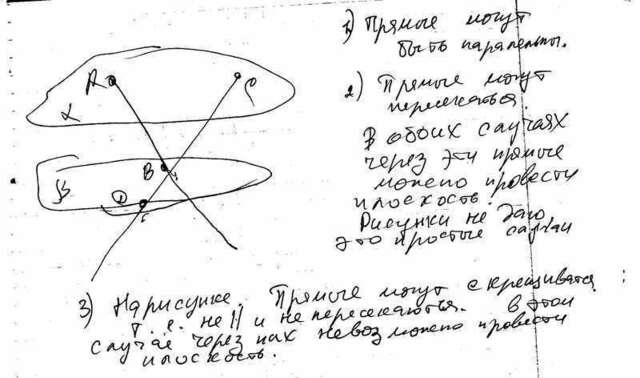 1) Прямые могут
быть паралельны.
2) Прямые могут
пересекаться.
В обоих случаях
через эти прямые
можно провести
плоскость.
Рисунки не даю
это простые случаи
A
C
α
B
β
D
3) На рисунке. Прямые могут скрещиватся
т. е. не || и не пересекаються. в этом
случае через них невозможно провести
плоскость.